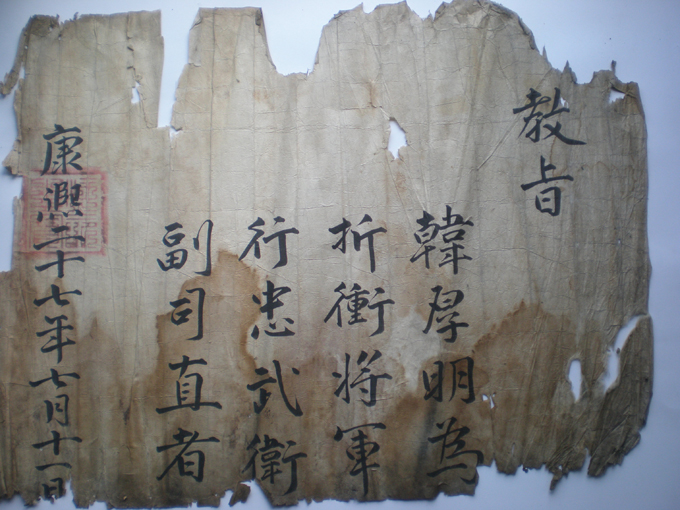 教旨
韓厚明為
折衝将軍
行忠武衛
副司直者
康熙二十七年七月十一日